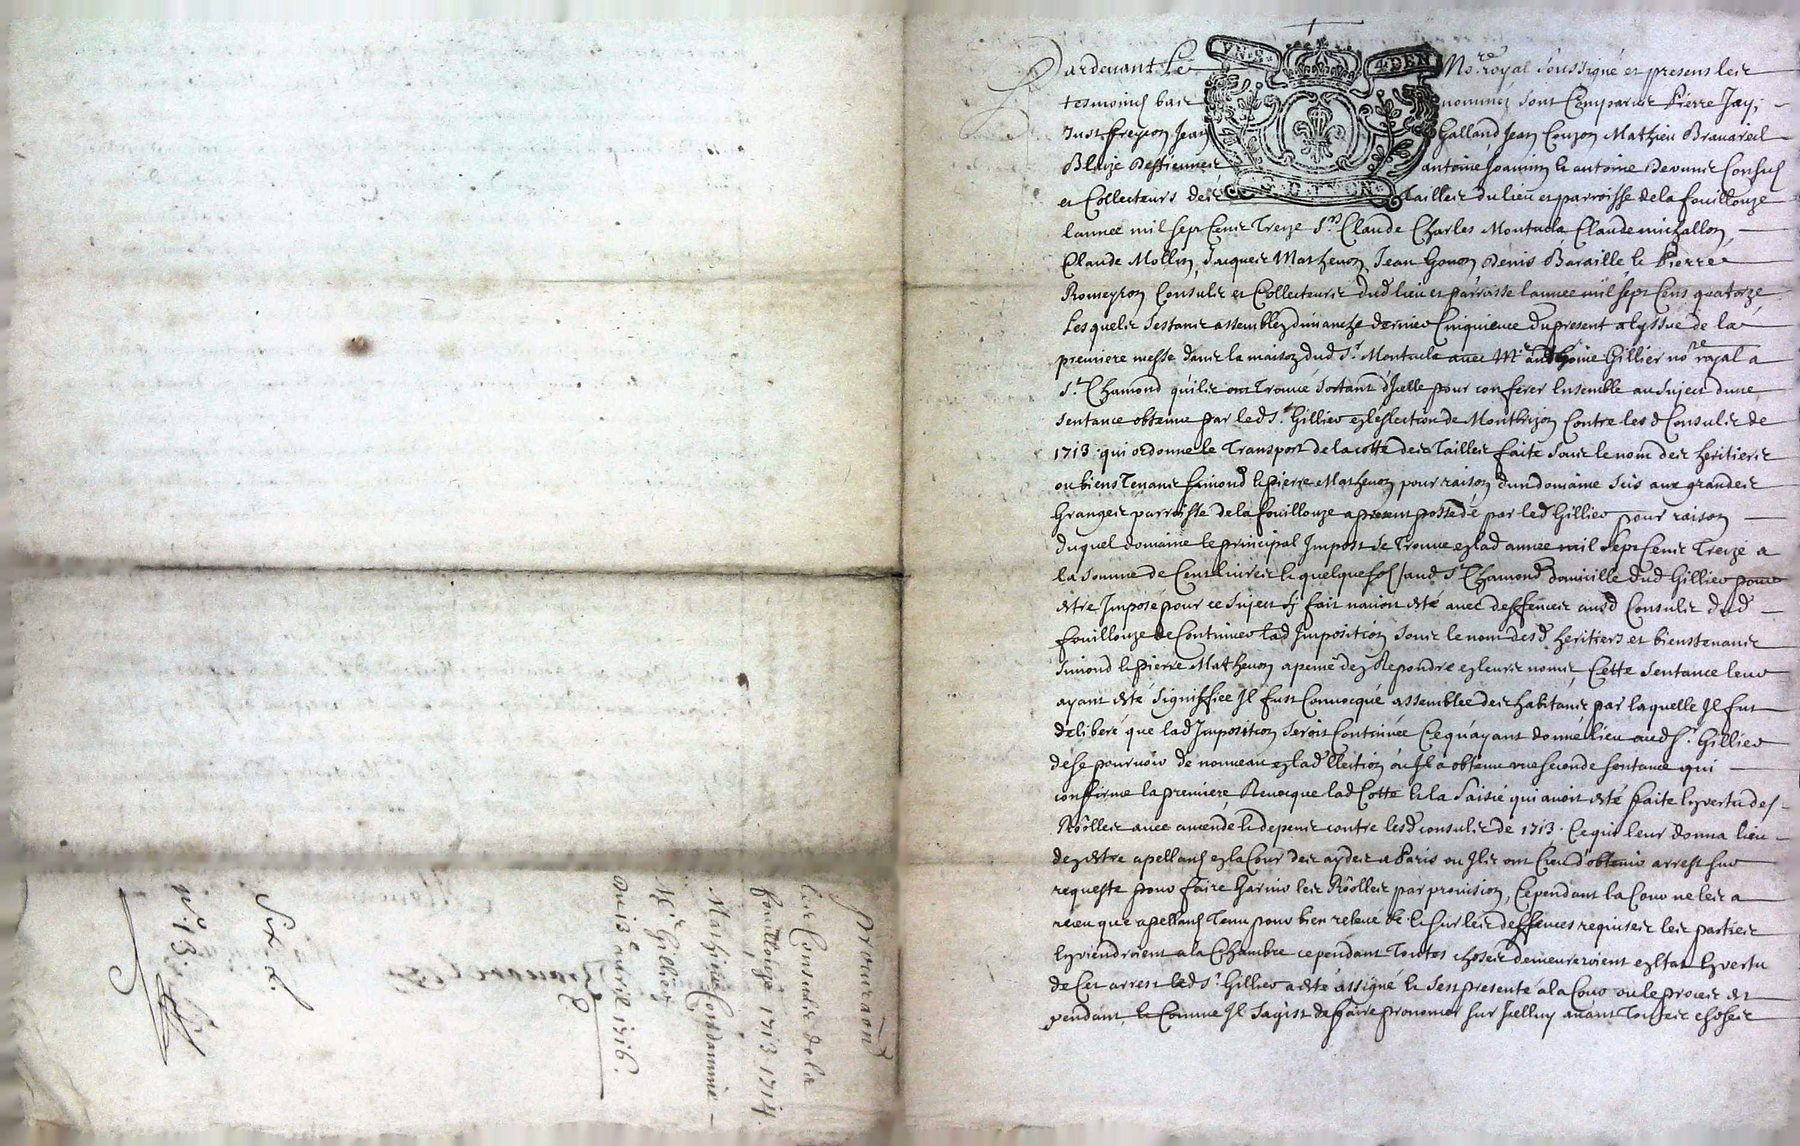 Procuraõn
les Consuls de la
fouillouze 1713 1714.
Mathieu
Mr Gillier
du 13e avril 1716.
No 13.
VN. S. 4. DEN
Pardevant Le No.re royal soussigné et presens les
tesmoins bas nommés sont Comparus Pierre Jay,
Just freycon Jean Galland Jean Couzon Mathieu
Blaize antoine Joannin & antoine Consuls
et Collecteurs des tailles du lieu et parroisse de la fouillouze
lannee mil sept Cents Treize Srs Claude Charles Montuela Claude michallon,
Claude Mollin, Jacques Mathevon, Jean Gonon, Denis Baraille & Pierre
Romeyron Consuls et Collecteurs dud lieu et parroisse lannee mil sept Cens quatorze
Lesquels sestant assemblez dimanche dernier Cinquieme du present a lyssue de la
premiere messe dans la maison dud Sr Montuela avec Mr anthoine Gillier no.re royal a
St Chamond quils ont Trouvé sortant d'Icelle pour conferer Ensemble au sujet dune
sentance obtenue par led Sr Gillier en leslection de Montbrizon Contre les d Consuls de
1713 qui ordonne le Transport de la cotte des Tailles faite sous le nom des heritiers
ou biens Tenants simond & pierre Mathevon pour raison d'un domaine scis aux grandes
Granges parroisse de la fouillouze a present possedé par led Gillier pour raison
duquel domaine le principal Impost se Trouve en lad annee mil sept Cents Treize a
la somme de Cent livres & quelque sols aud St Chamond domicille dud Gillier pour
estre Imposé pour ce sujet sy fait navoit esté avec deffences ausd Consuls dud
fouillouze de Continuer lad Imposition sous le nom desd heritiers et bienstenants
simond & pierre Mathevon a peine d'en Repondre en leurs noms, Cette sentance leur
ayant esté signiffiee Il fust Convocqué assemblee des habitants par laquelle Il fut
deliberé que lad Imposition seroit Continuée Ce quayant donné lieu aud Sr Gillier
de se pourvoir de nouveau en lad Election où Il a obtenu une seconde sentance qui
confirme la premiere, Revocque lad Cotte & la saisie qui avoit esté faite En vertu des
Roolles avec amende & depens contre lesd consuls de 1713. Ce qui leur donna lieu
d'en estre apellans en la Cour des aydes a Paris ou Ils ont Creu d'obtenir arrest sur
requeste pour faire les Roolles par provision, Cependant la Cour ne les a
receu que apellans Tenu pour bien relevé & sur les deffences requises les parties
En viendroient a la Chambre cependant Toutes choses demeureroient en Estat En vertu
de Cet arrest led Sr Gillier a esté assigné & sest presenté a la Cour ou le proces est
pendant, & Comme Il sagist de faire prononcer sur Icelluy avant Toutes choses